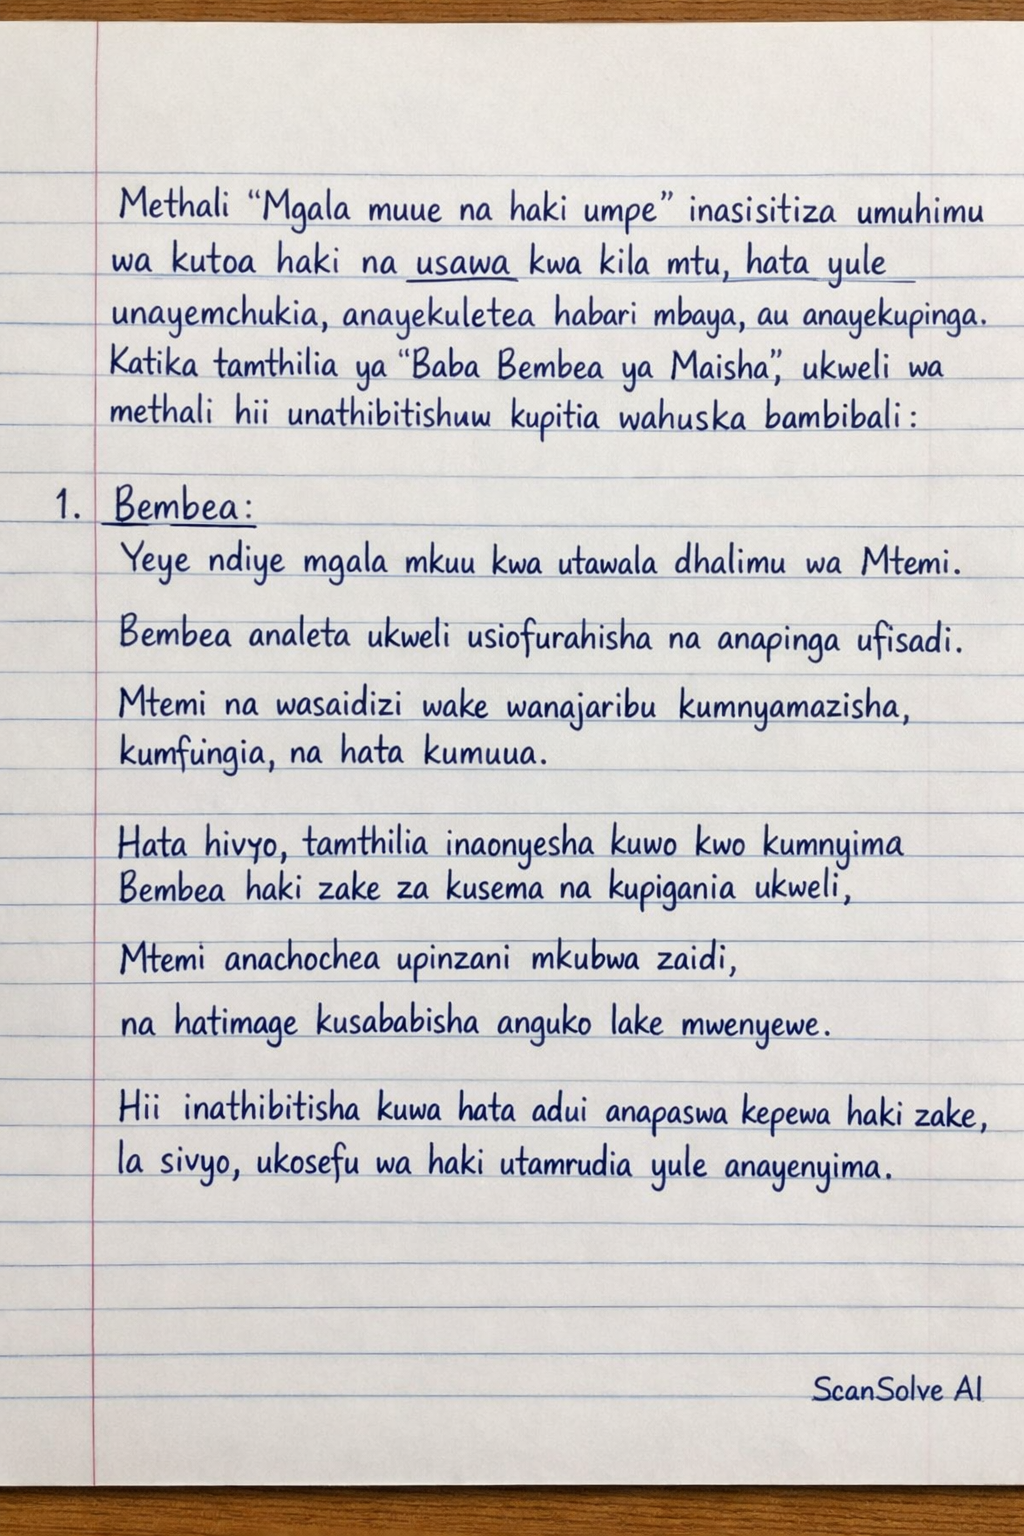 Methali “Mgala muue na haki umpe” inasisitiza umuhimu
wa kutoa haki na usawa kwa kila mtu, hata yule
unayemchukia, anayekuletea habari mbaya, au anayekupinga.
Katika tamthilia ya “Baba Bembea ya Maisha”, ukweli wa
methali hii unathibitishuw kupitia wahuska bambibali:
1. Bembea:
Yeye ndiye mgala mkuu kwa utawala dhalimu wa Mtemi.
Bembea analeta ukweli usiofurahisha na anapinga ufisadi.
Mtemi na wasaidizi wake wanajaribu kumnyamazisha,
kumfungia, na hata kumuua.
Hata hivyo, tamthilia inaonyesha kuwo kwo kumnyima
Bembea haki zake za kusema na kupigania ukweli,
Mtemi anachochea upinzani mkubwa zaidi,
na hatimage kusababisha anguko lake mwenyewe.
Hii inathibitisha kuwa hata adui anapaswa kepewa haki zake,
la sivyo, ukosefu wa haki utamrudia yule anayenyima.
ScanSolve AI